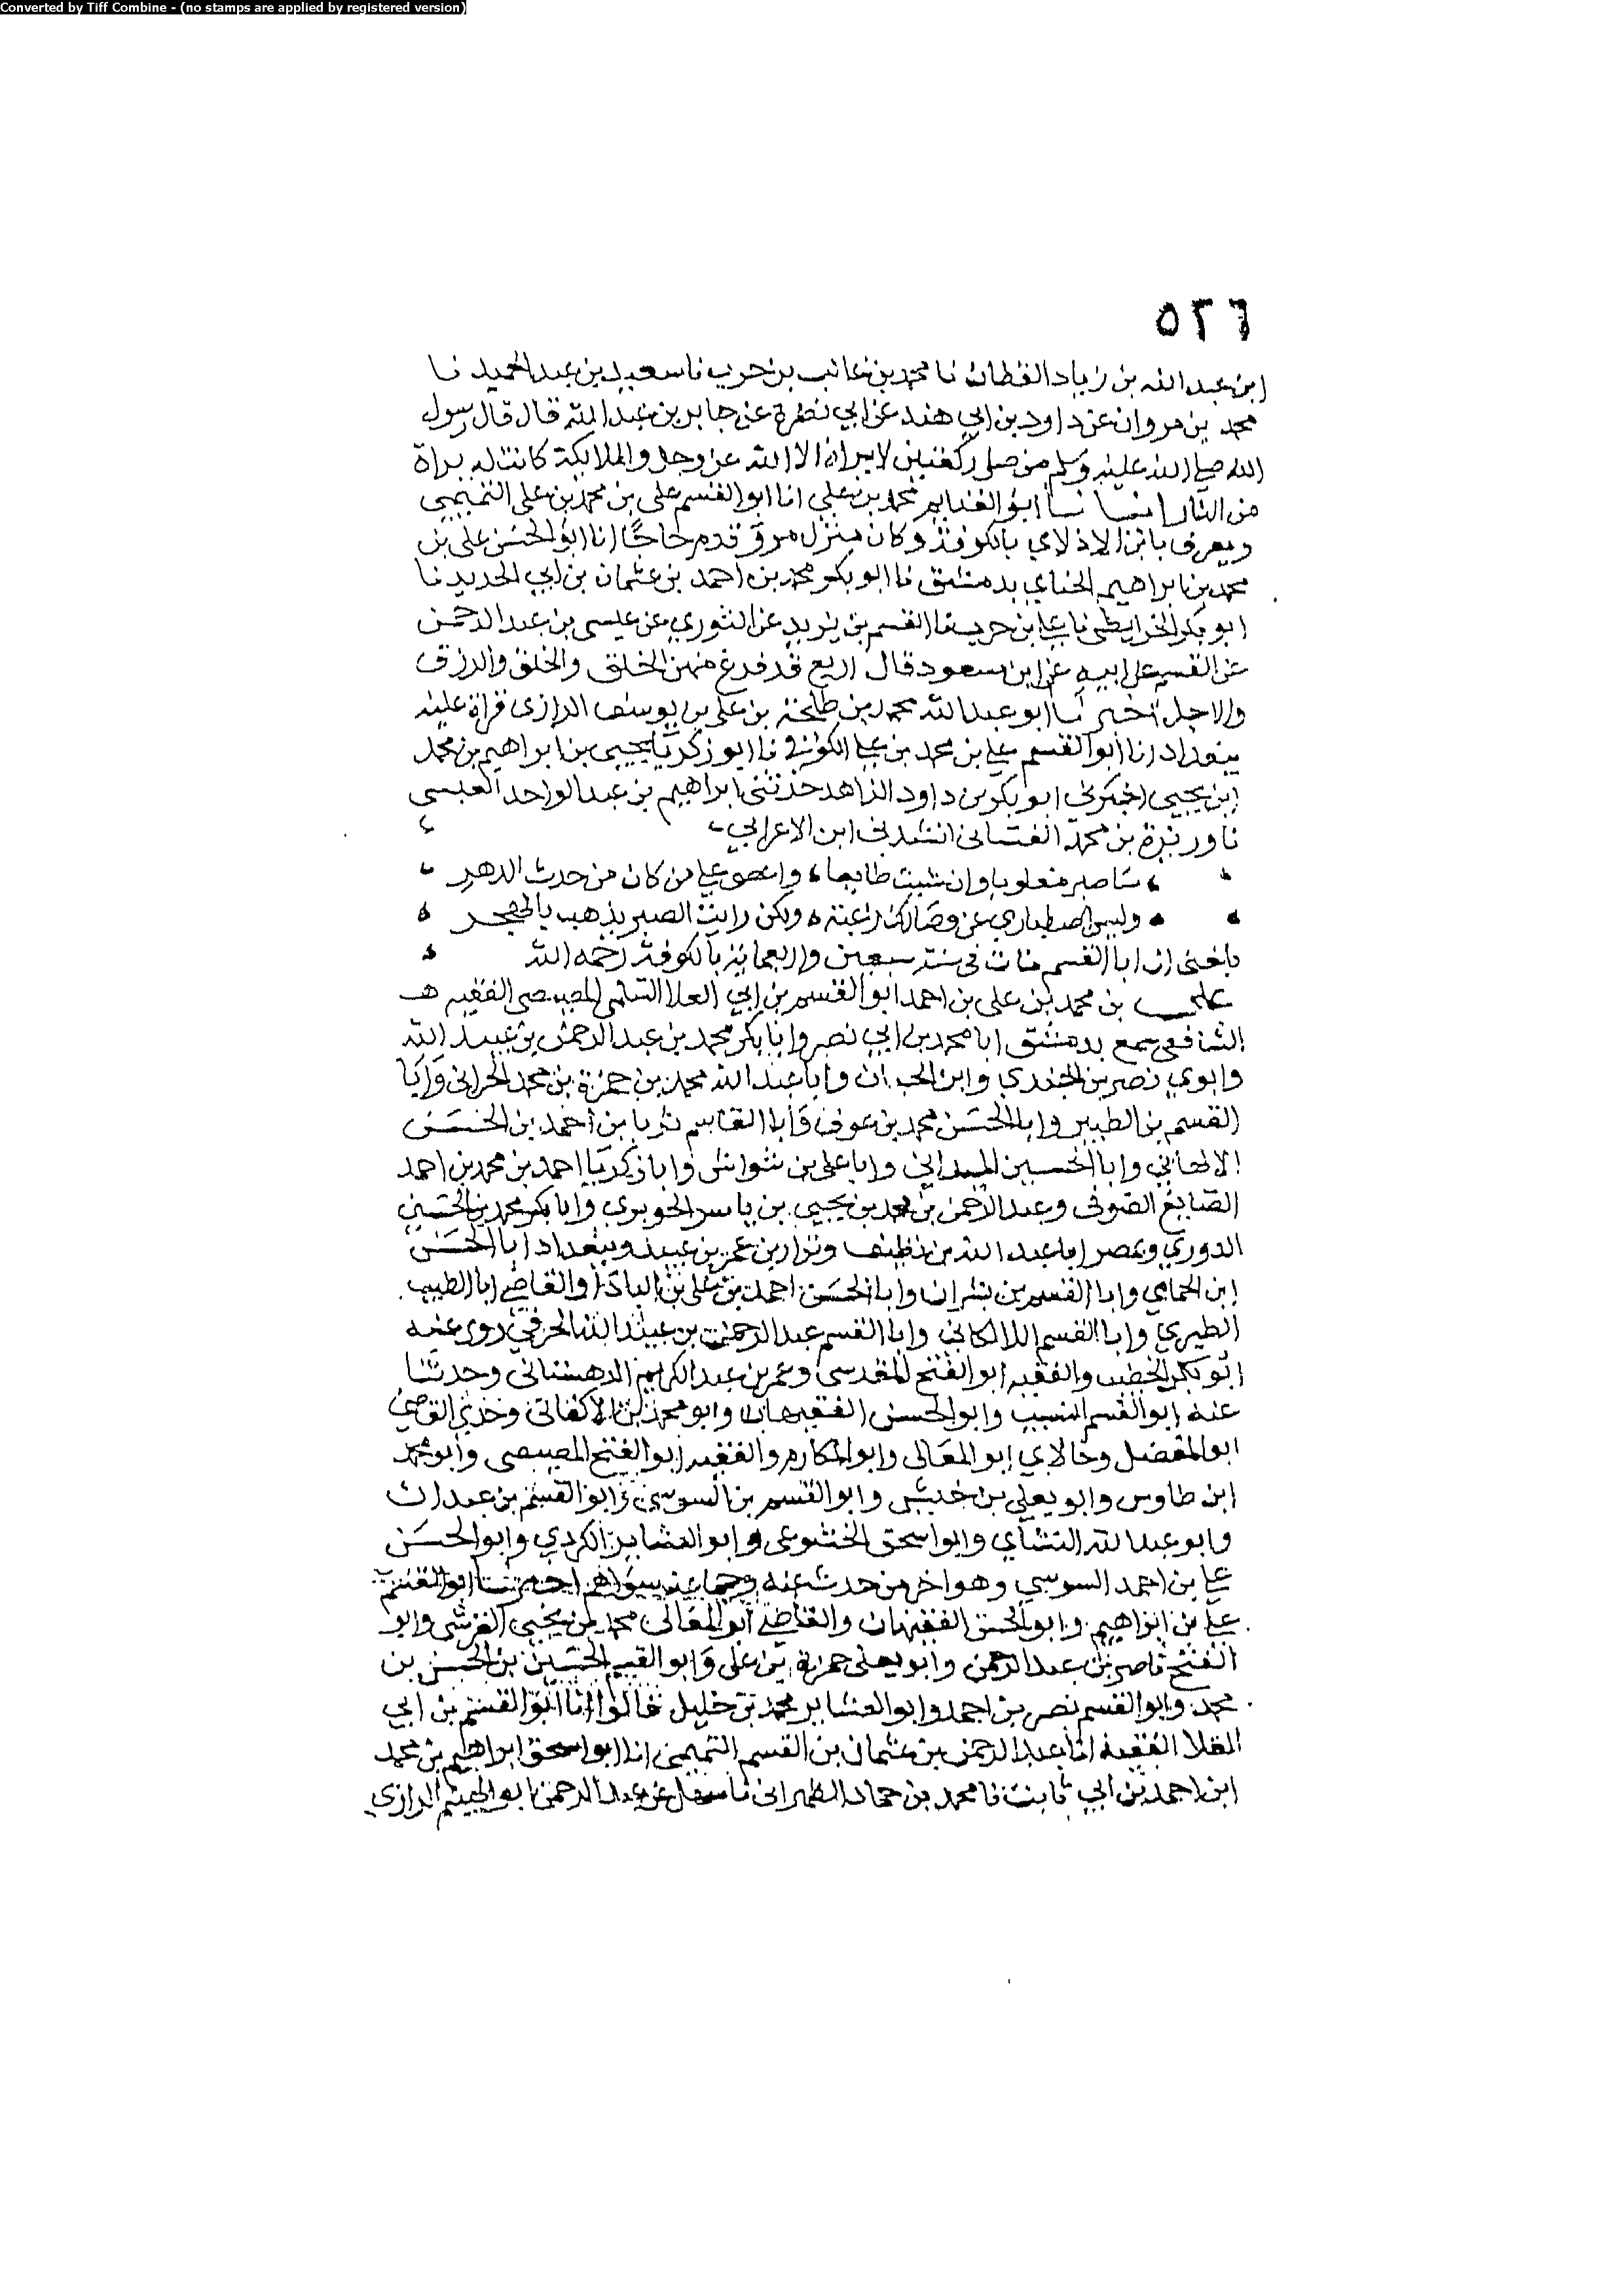 Converted by Tiff Combine - (no stamps are applied by registered version)
٥٢٦
ابن عبد الله بن زياد القطان نا محمد بن غالب بن حرب نا سعيد بن عبد الحميد نا
محمد بن مروان عن داود بن ابي هند عن ابي نضرة عن جابر بن عبد الله قال قال رسول
الله صلى الله عليه وسلم من صلى ركعتين لا يراه الا الله عز وجل والملايكة كانت له براة
من النار انبانا ابو الغنايم محمد بن علي انا ابو القسم علي بن محمد بن علي التميمي
ويعرف بابن الاذلاي بالكوفة وكان ينزل مرو قدم حاجا انا ابو الحسن علي بن
محمد بن ابراهيم الحناي بدمشق نا ابو بكر محمد بن احمد بن عثمان بن ابي الحديد نا
ابو بكر الخرايطي نا علي بن حرب نا القسم بن يزيد عن الثوري عن عيسى بن عبد الرحمن
عن القسم عن ابيه عن ابن مسعود قال اربع قد فرغ منهن الخلق والخلق والرزق
والاجل اخبرنا ابو عبد الله محمد بن طلحة بن علي بن يوسف الرازي قراة عليه
ببغداد انا ابو القسم علي بن محمد بن علي الكوفي نا ابو زكريا يحيى بن ابراهيم بن محمد
ابن يحيى اخبرني ابو بكر بن داود الزاهد حدثني ابراهيم بن عبد الواحد العبسي
نا وريزة بن محمد الغساني انشدني ابن الاعرابي
ساصبر مغلوبا وان شيت طايعا واعصي على من كان من حدث الدهر
وليس اصطباري عن وصالك رغبة ولكن رايت الصبر يذهب بالهجر
بلغني ان ابا القسم مات في سنة سبعين واربعماية بالكوفة رحمه الله
علي بن محمد بن علي بن احمد ابو القسم بن ابي العلا السلمي المصيصي الفقيه
الشافعي سمع بدمشق ابا محمد بن ابي نصر وابا بكر محمد بن عبد الرحمن بن عبيد الله
وابوي نصر بن الجندي وابن الجبان وابا عبد الله محمد بن حمزة بن محمد الحراني وابا
القسم بن الطبيز وابا الحسن محمد بن عوف وابا القاسم ثريا بن احمد بن الحسن
الالهاني وابا الحسين الميداني وابا علي بن شواش وابا زكريا احمد بن محمد بن احمد
الصايغ الصوفي وعبد الرحمن بن محمد بن يحيى بن ياسر الجوبري وابا بكر محمد بن الحسين
الدوري وبمصر ابا عبد الله بن نظيف ونزار بن عمر بن عبيد وببغداد ابا الحسن
ابن الحمامي وابا القسم بن بشران وابا الحسن احمد بن علي بن البادا والقاضي ابا الطيب
الطبري وابا القسم اللالكاي وابا القسم عبد الرحمن بن عبيد الله الحرفي روى عنه
ابو بكر الخطيب والفقيه ابو الفتح المقدسي وعمر بن عبد الكريم الدهستاني وحدثنا
عنه ابو القسم النسيب وابو الحسن الفقيهان وابو محمد بن الاكفاني وجدي القاضي
ابو المفضل وخالاي ابو المعالي وابو المكارم والفقيه ابو الفتح المصيصي وابو محمد
ابن طاوس وابو يعلى بن حبيش وابو القسم بن السوسي وابو القسم بن عبدان
وابو عبد الله النشابي وابو اسحق الخشوعي وابو العشاير الكردي وابو الحسن
علي بن احمد السوسي وهو اخر من حدث عنه وجماعة سواهم اخبرنا ابو القسم
علي بن ابراهيم وابو الحسن الفقيهان والقاضي ابو المعالي محمد بن يحيى القرشي وابو
الفتح ناصر بن عبد الرحمن وابو يعلى حمزة بن علي وابو القسم الحسين بن الحسن بن
محمد وابو القسم نصر بن احمد وابو العشاير محمد بن خليل قالوا انا ابو القسم بن ابي
العلا الفقيه انا عبد الرحمن بن عثمان بن القسم التميمي انا ابو اسحق ابراهيم بن محمد
ابن احمد بن ابي ثابت نا محمد بن حماد الطهراني نا سهل بن عبد الرحمن ابو الهيثم الرازي